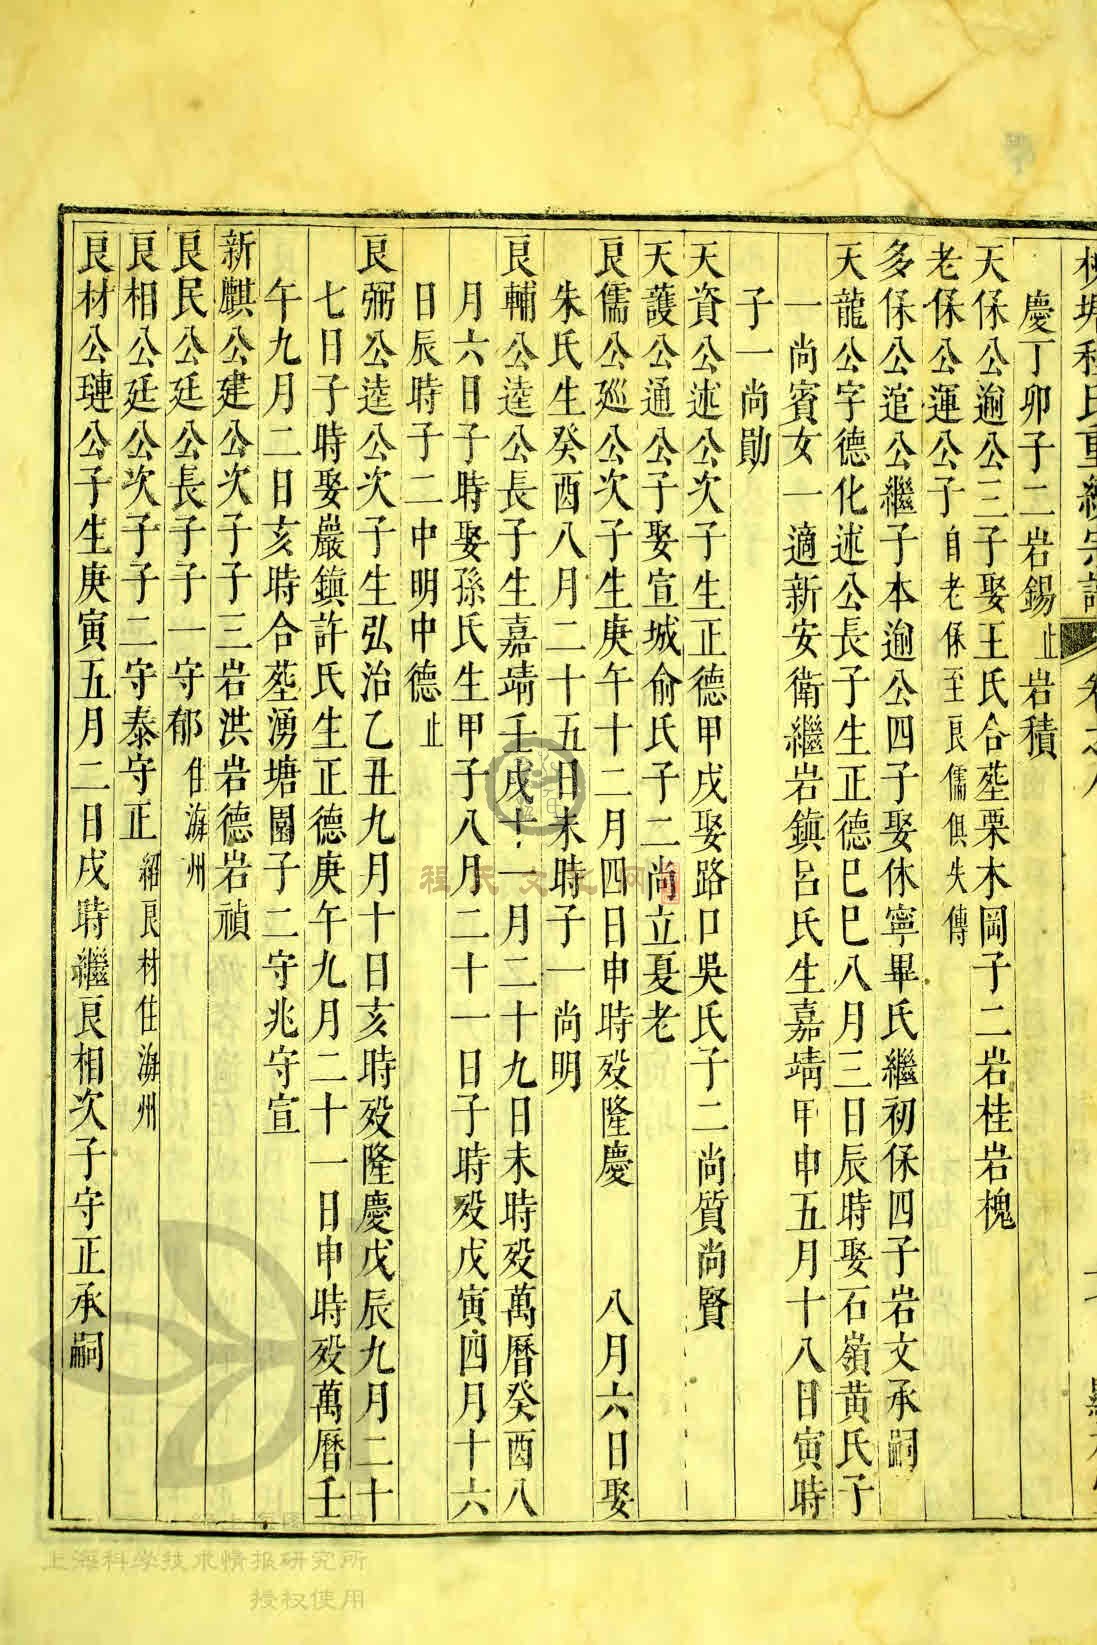 慶丁卯子二岩錫止岩積
天保公逈公三子娶王氏合塟栗木岡子二岩桂岩槐
老保公運公子自老保至良儒俱失傳
多保公逭公繼子本逈公四子娶休寧畢氏繼初保四子岩文承嗣
天龍公字德化述公長子生正德巳巳八月三日辰時娶石嶺黃氏子
一尚賓女一適新安衛繼岩鎮呂氏生嘉靖甲申五月十八日寅時
子一尚勛
天資公述公次子生正德甲戌娶路口吳氏子二尚質尚賢
天護公通公子娶宣城俞氏子二尚立夏老
良儒公廵公次子生庚午十二月四日申時殁隆慶 八月六日娶
朱氏生癸酉八月二十五日未時子一尚明
良輔公逵公長子生嘉靖壬戌十一月二十九日未時殁萬曆癸酉八
月六日子時娶孫氏生甲子八月二十一日子時殁戊寅四月十六
日辰時子二中明中德止
良弼公逵公次子生弘治乙丑九月十日亥時殁隆慶戊辰九月二十
七日子時娶巖鎮許氏生正德庚午九月二十一日申時殁萬曆壬
午九月二日亥時合塟湧塘園子二守兆守宣
新麒公建公次子子三岩洪岩德岩禎
良民公廷公長子子一守郁住澥州
良相公廷公次子子二守泰守正紹良材住澥州
良材公璉公子生庚寅五月二日戌時繼良相次子守正承嗣
程氏文献网
上海科学技术情报研究所
授权使用